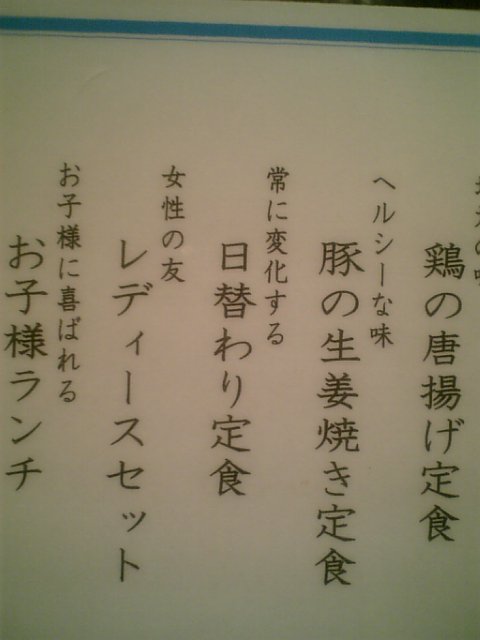 鶏の唐揚げ定食
ヘルシーな味
豚の生姜焼き定食
常に変化する
日替わり定食
女性の友
レディースセット
お子様に喜ばれる
お子様ランチ